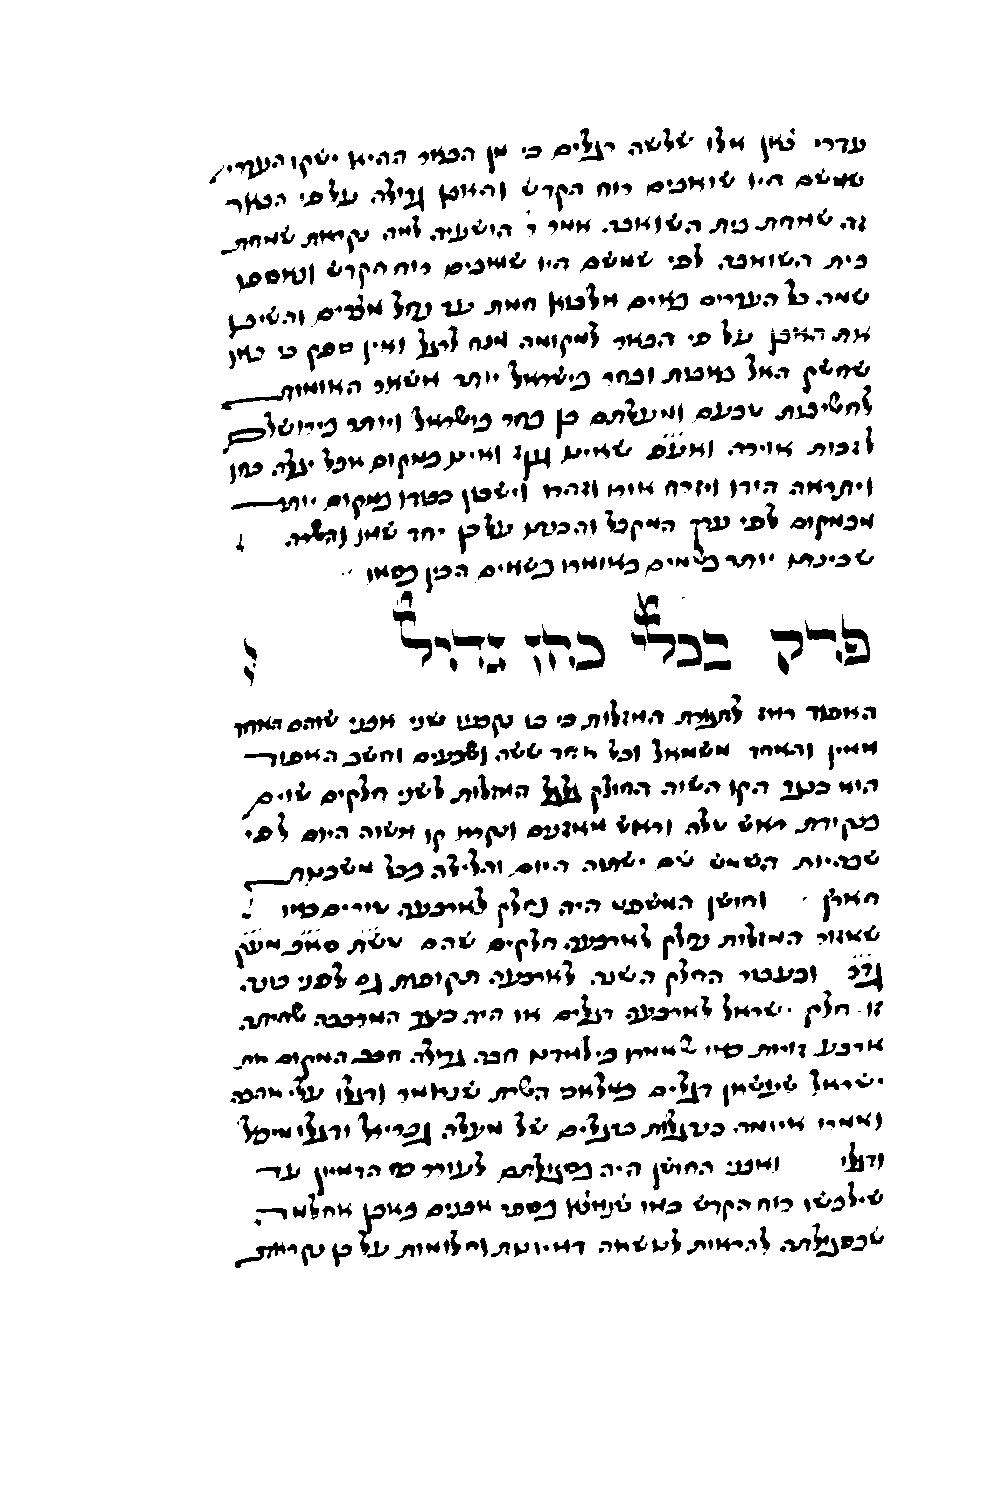 עדרי צאן אלו שלשה רגלים כי מן הבאר ההיא ישקו העדרי
שמשם היו שואבים רוח הקדש והאבן גדולה על פי הבאר
זה שמחת בית השואבה אמר ר' הושעיה למה נקראת שמחת
בית השואבה לפי שמשם היו שואבים רוח הקדש ונאספו
שמה כל העדרים באים מלבוא חמת עד נחל מצרים והשיבו
את האבן על פי הבאר למקומה מנח לרגל ואין ספק כי כאן
שחשק האל באבות ובחר בישראל יותר משאר האומות
לחשיבות טבעם ומעלתם כן בחר בישראל ויותר בירושלם
לזכות אוירה ואע"פ שאיע ואיע במקום מבל יגלה כחו
ויתראה הודו ויזרח אורו וזהרו וישכון כבודו במקום יותר
מבמקום לפי ערך המקבל והכנתו על כן יחד שמו והשרה
שכינתו יותר בשמים כאומרו בשמים הכין כסאו
פרק בכלי כהן גדול
האפוד רמז לחגורת המזלות כי בו נקבעו שני אבני שוהם האחד
מימין והאחד משמאל וכל אחד ששה ושבעים וחשב האפוד
הוא כנגד הקו השוה החולק גלגל המזלות לשני חלקים שוים
מנקודת ראש טלה וראש מאזנים ונקרא קו משוה היום לפי
שבהיות השמש שם ישתוה היום והלילה בכל משכנות
הארץ וחושן המשפט היה נחלק לארבעה טורים כמו
שאזור המזלות נחלק לארבעה חלקים שהם
וכעבור החלק השני לארבעה תקופות גם לפני
זו חלק ישראל לארבעה דגלים או היה כנגד המרכבה שהיתה
ארבע זויות כמו שאמרו כי למדא חבה גדולה חבב המקום את
ישראל שיעשון דגלים כמלאכי השרת שנאמר ודגלו עלי אהבה
ואמרו איומה כנדגלות כדגלים של מעלה גבריאל ודגלו מיכאל
ודגלו ואבני החושן היה בסגולתם לעורר כח הדמיון עד
שילבשו רוח הקדש כמו שנמצא בספר אבנים באבן אחלמה
שבסגולתה להראות לנושאה דמיונות וחלומות על כן נקראת